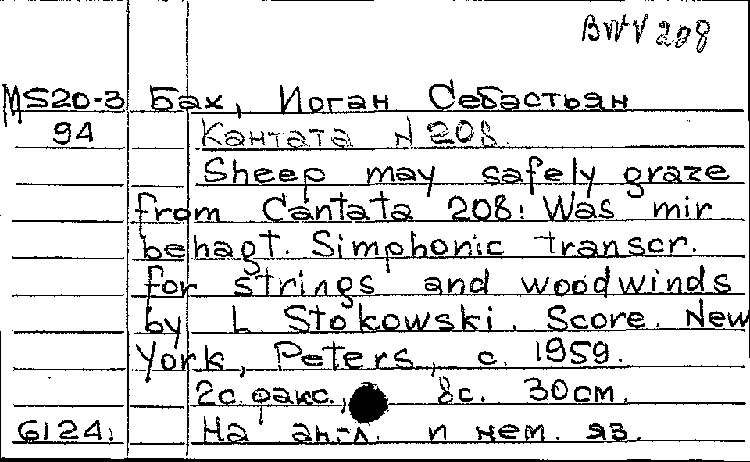 BWV 208
MS20-3 Бах, Иоган Себастьян
94 Кантата N 208.
Sheep may safely graze
from Cantata 208: Was mir
behagt. Simphonic transcr.
for strings and woodwinds
by L Stokowski. Score. New
York, Peters, c. 1959.
2с. факс., 8с. 30см.
6124. На англ. и нем. яз.